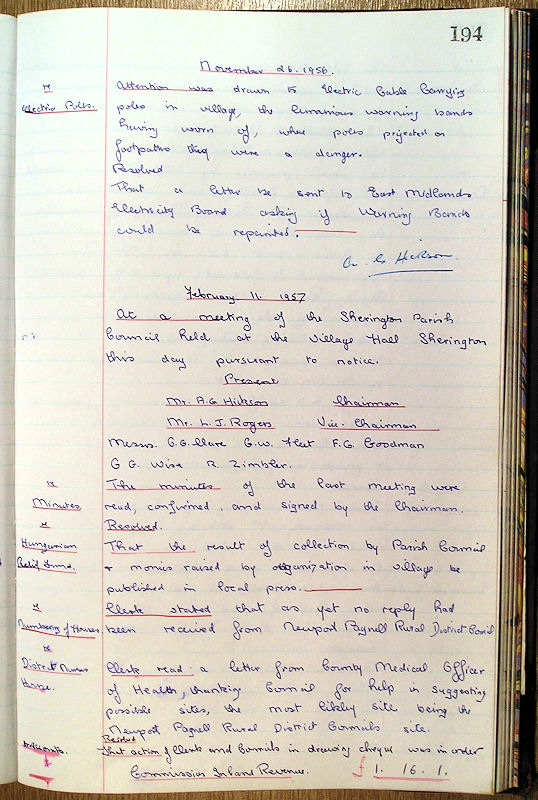 194
November 26. 1956.
Electric Poles.
Attention was drawn to Electric Cable Carrying
poles in village, the luminious warning bands
having worn of, where poles projected on
footpaths they were a danger.
Resolved
That a letter be sent to East Midlands
Electricity Board asking if Warning Bands
could be repainted.
A G Hickson
February 11. 1957
At a meeting of the Sherington Parish
Council held at the Village Hall Sherington
this day pursuant to notice.
Present
Mr. A.G Hickson Chairman
Mr. L. J. Rogers Vice Chairman
Messrs. G.G. Clare G.W. Fleet F.G. Goodman
G G. Wise R. Zimbler.
Minutes
The minutes of the last meeting were
read, confirmed and signed by the Chairman.
Resolved.
Hungarian
Relief Fund.
That the result of collection by Parish Council
+ monies raised by organization in village be
published in local press.
Numbering of Houses
Clerk stated that as yet no reply had
been received from Newport Pagnell Rural District Council
District Nurses
House.
Clerk read a letter from County Medical Officer
of Health, thanking Council for help in suggesting
possible sites, the most likely site being the
Newport Pagnell Rural District Councils site.
Resolved
Accounts.
That action of Clerk and Councils in drawing cheque was in order
Commission Inland Revenue. £ 1. 16. 1.